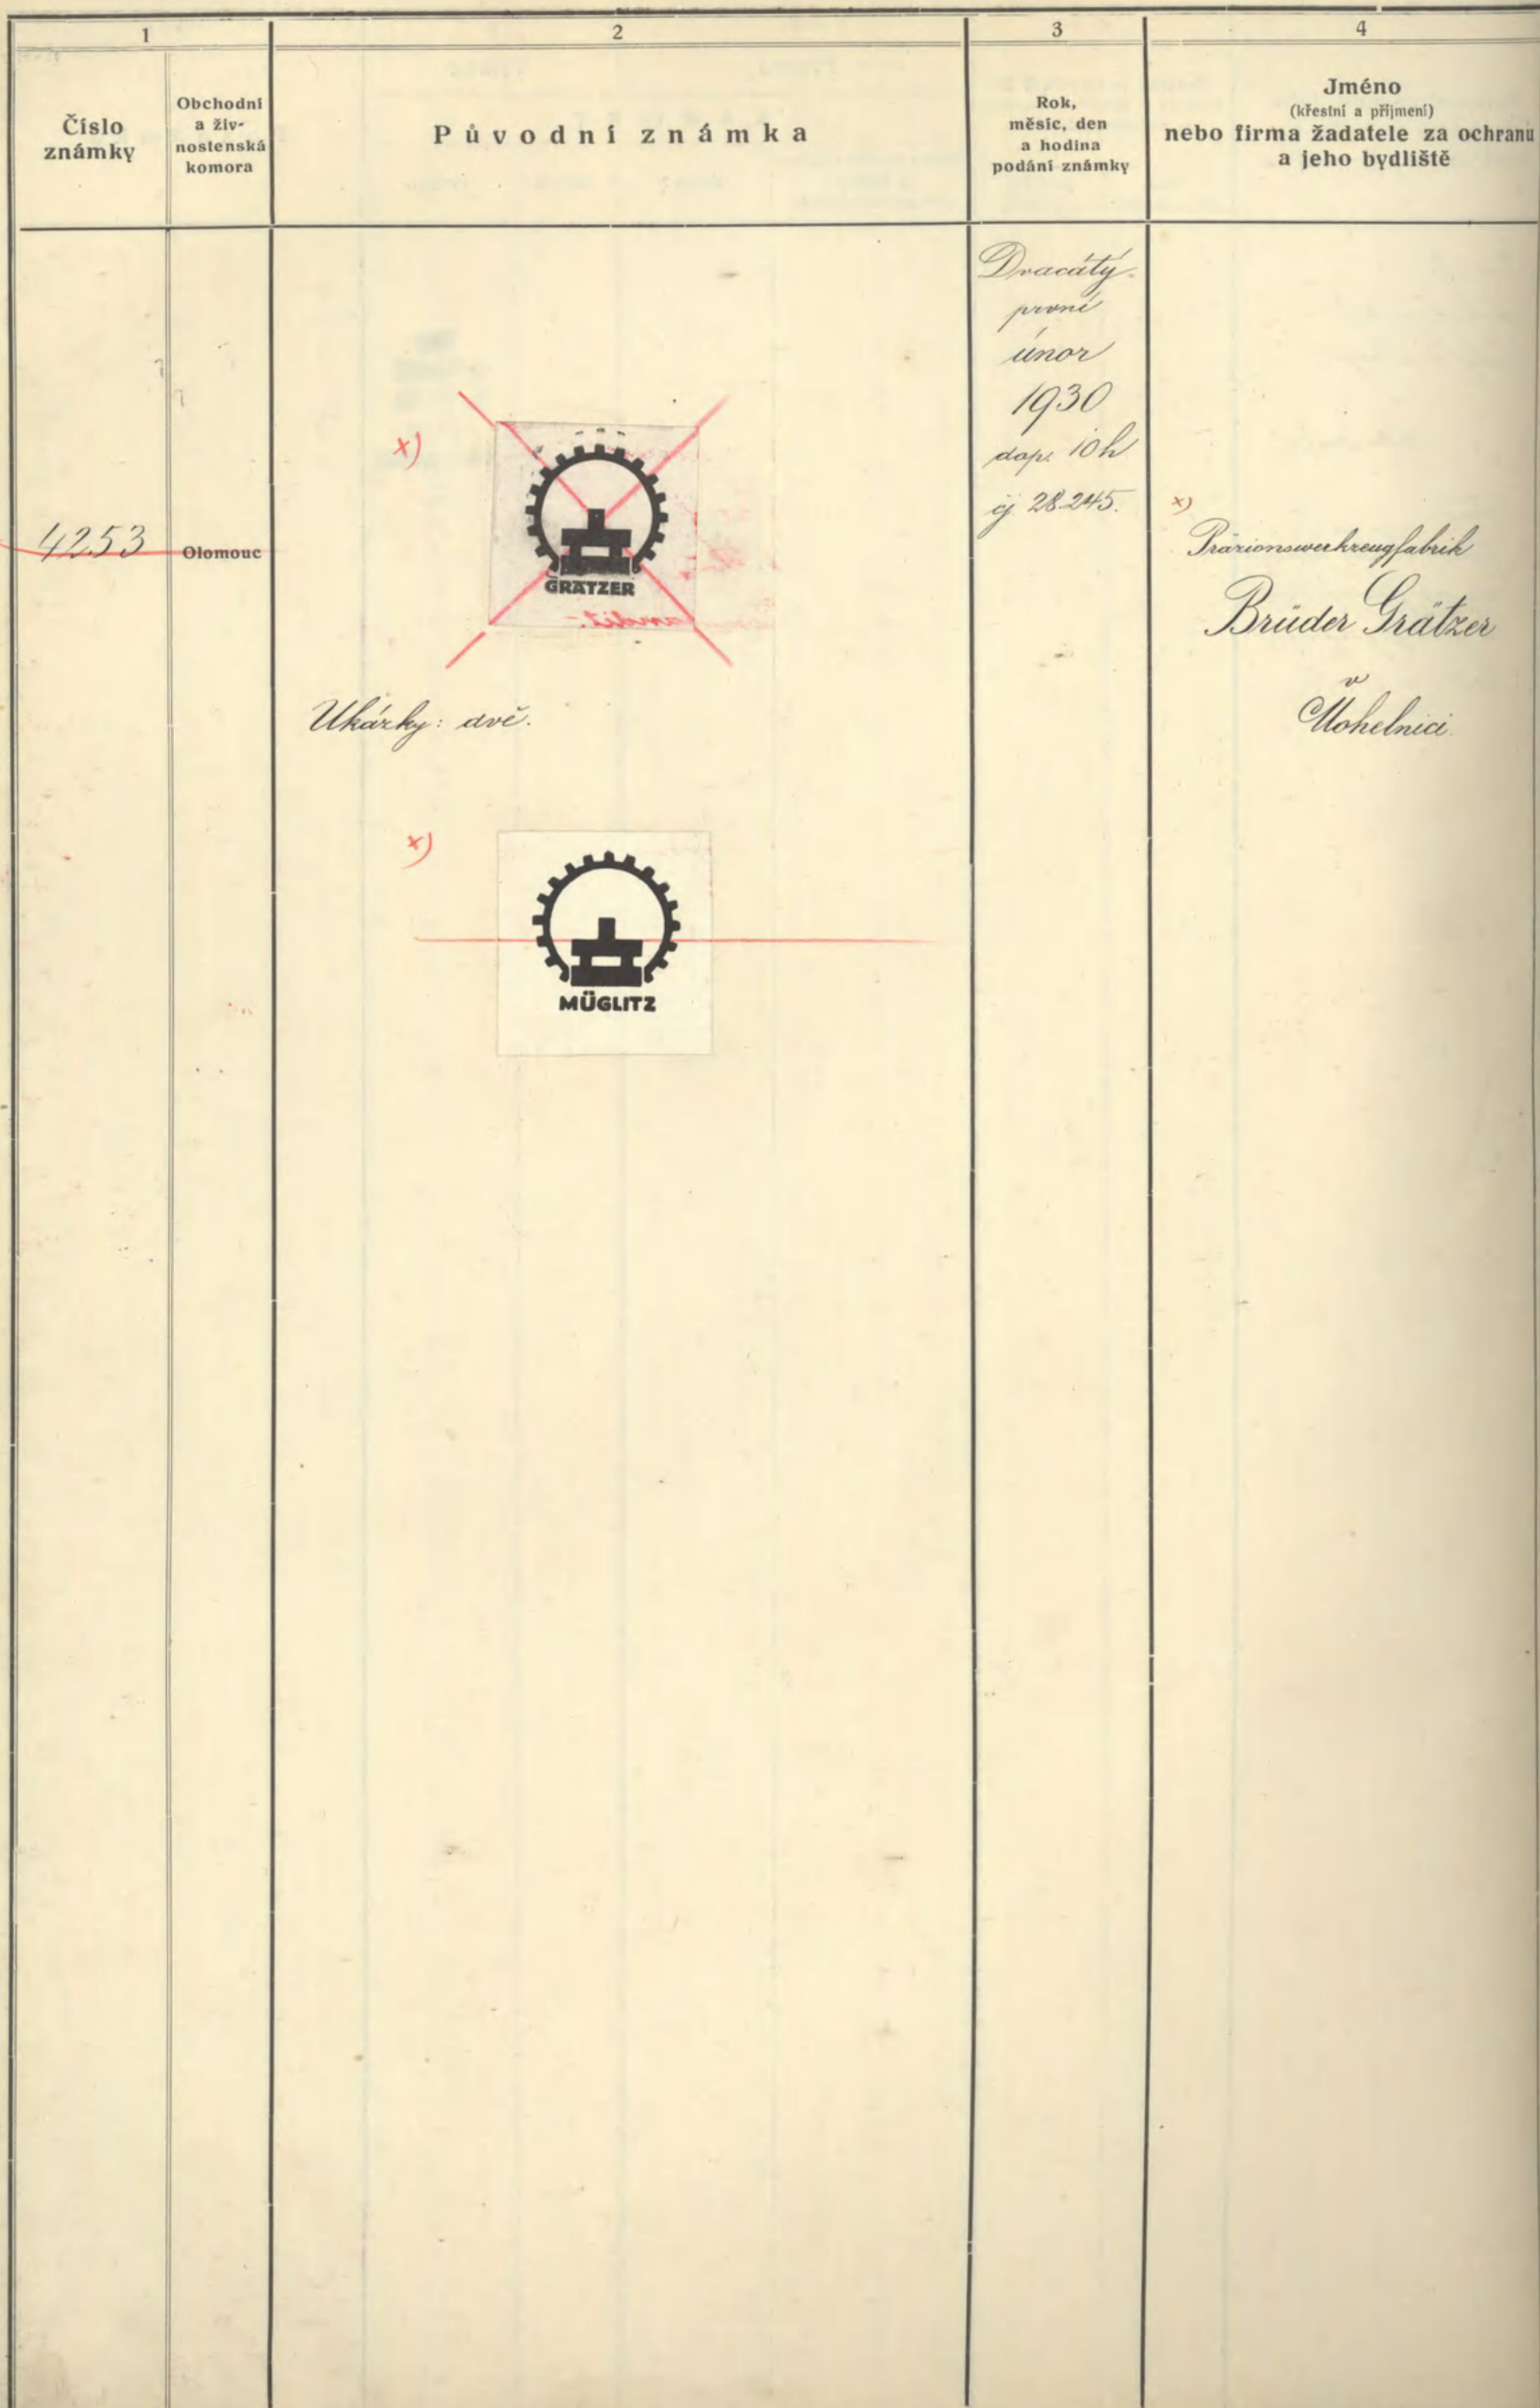 1
2
3
4
Číslo
známky
Obchodní
a živ-
nostenská
komora
Původní známka
Rok,
měsíc, den
a hodina
podání známky
Jméno
(křestní a příjmení)
nebo firma žadatele za ochranu
a jeho bydliště
4253
Olomouc
x)
GRÄTZER
Ukázky: dvě.
x)
MÜGLITZ
Dvacátý
první
únor
1930
dop. 10h
čj 28.245.
x)
Präzionswerkzeugfabrik
Brüder Grätzer
v
Mohelnici.